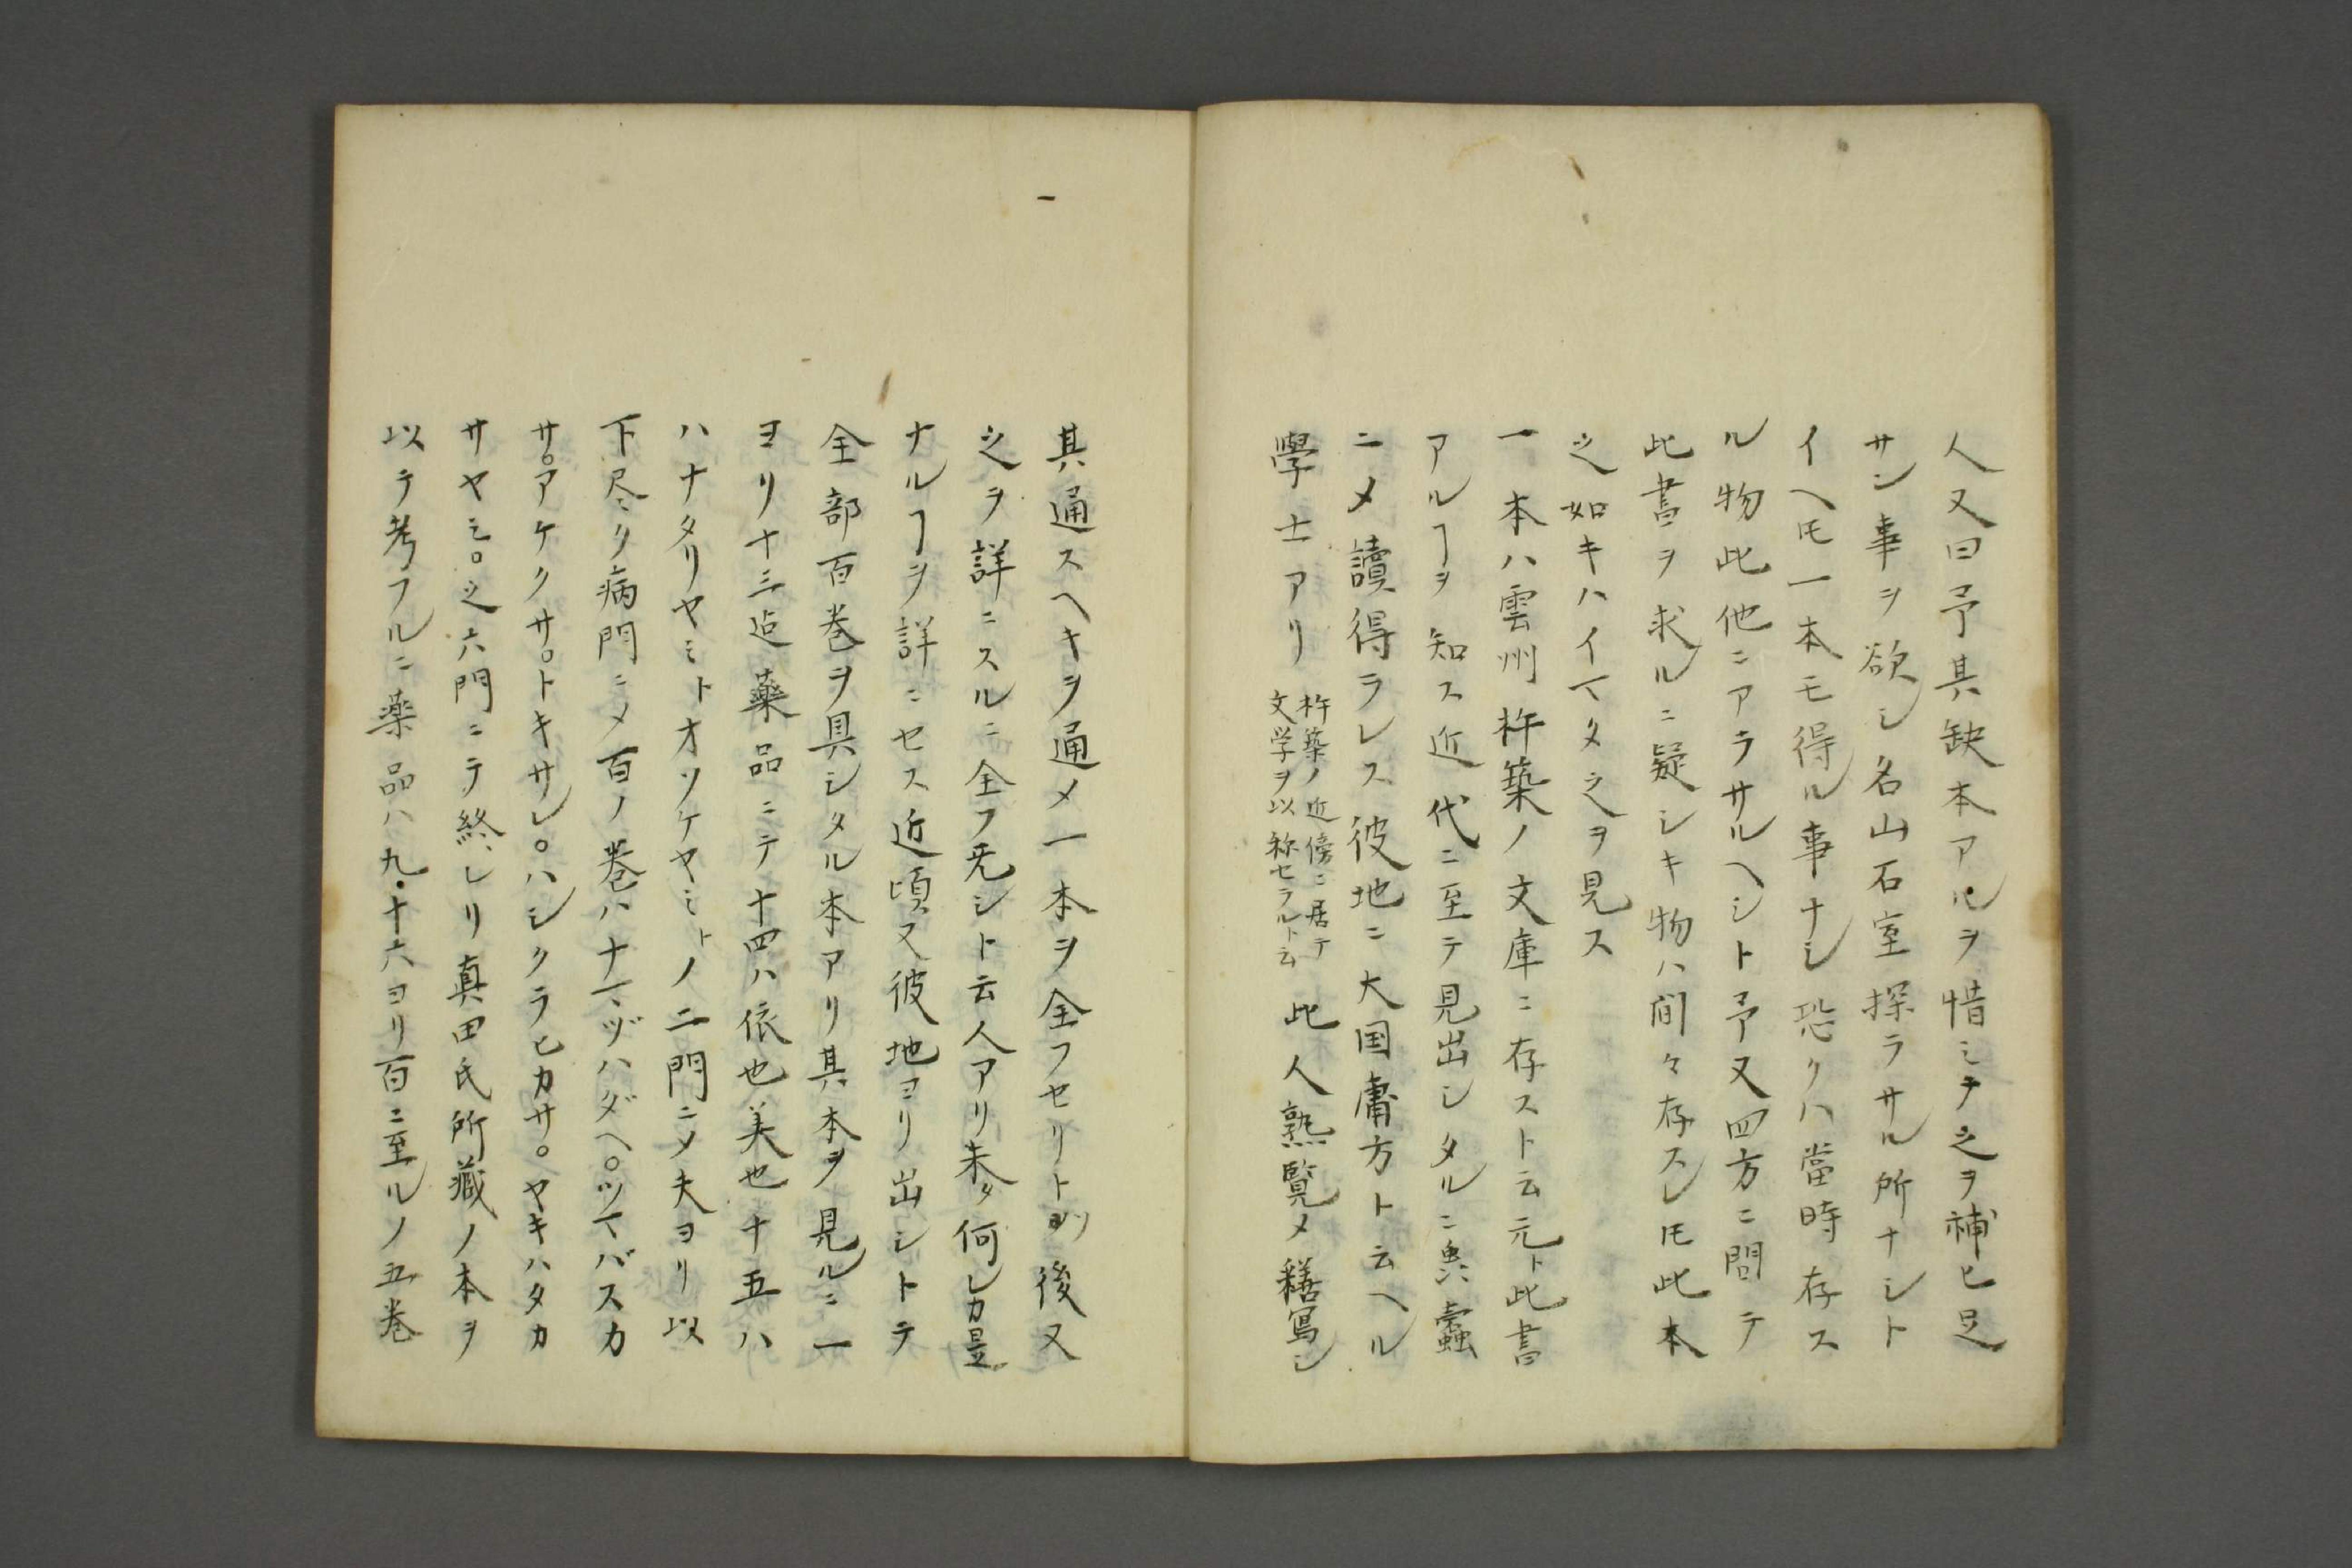 人又曰予其缺本アルヲ惜ミテ之ヲ補ヒ足
サン事ヲ欲シ名山石室探ラサル所ナシト
イヘ𪜈一本モ得ル事ナシ恐クハ當時存ス
ル物此他ニアラサルヘシト予又四方ニ問テ
此書ヲ求ルニ疑シキ物ハ間々存スレ𪜈此本
之如キハイマタ之ヲ見ス
一本ハ雲州杵築ノ文庫ニ存スト云元ト此書
アルヿヲ知ス近代ニ至テ見出シタルニ魚蠹
ニメ讀得ラレス彼地ニ大国庸方ト云ヘル
學士アリ
杵築ノ近傍ニ居テ
文学ヲ以称セラルト云
此人熟覧メ繕寫シ
其通スヘキヲ通メ一本ヲ全フセリト 後又
之ヲ詳ニスルニ全フ旡シト云人アリ未タ何レカ是
ナルヿヲ詳ニセス近頃又彼地ヨリ出シトテ
全部百巻ヲ具シタル本アリ其本ヲ見ルニ一
ヨリ十三迠薬品ニテ十四ハ依也美也十五ハ
ハナタリヤミトオソケヤミトノ二門ニメ夫ヨリ以
下尽ク病門ニメ百ノ巻ハナマヅハダヘ。ツマバスカ
サ。アケクサ。トキサレ。ハシクラヒカサ。ヤキハタカ
サヤミ。之六門ニテ終レリ真田氏所蔵ノ本ヲ
以テ考フルニ薬品ハ九・十六ヨリ百ニ至ルノ五巻